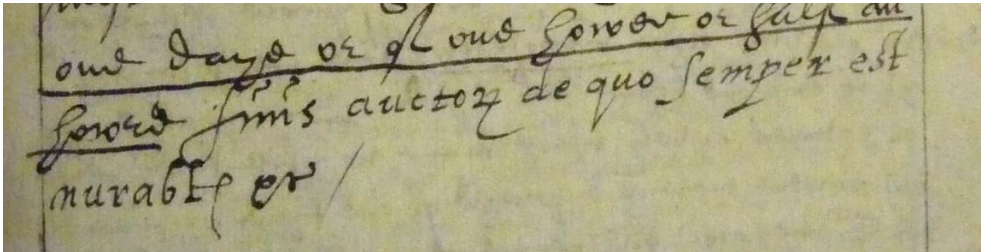 one daye or of one hower or half an
howre finis auctoꝝ de quo semper est
mirabile